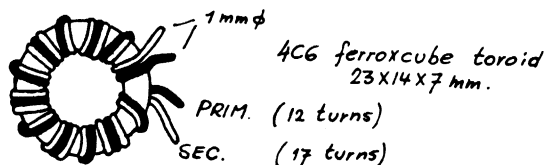 1 mm ϕ
4C6 ferroxcube toroid
23X14X7 mm.
PRIM. (12 turns)
SEC. (17 turns)